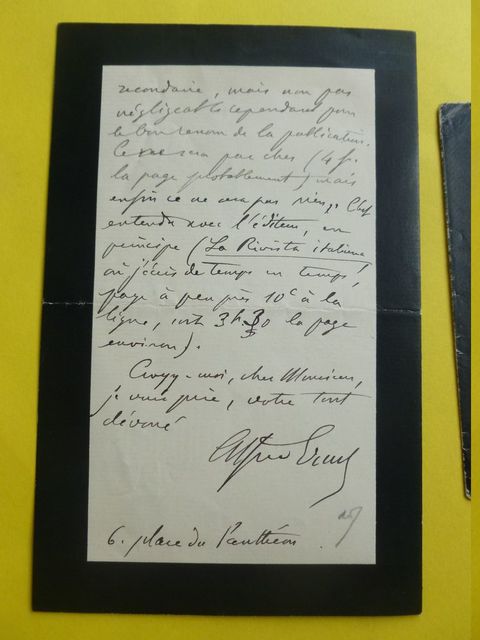 secondaire, mais non pas
négligeable cependant pour
le bon renom de la publication.
Ce ne sera pas cher (4 f.
la page probablement) mais
enfin ce ne sera pas rien,
entendu avec l'éditeur, en
principe (La Rivista italiana
où j'écris de temps en temps,
page à peu près 10c à la
ligne, soit 3 f. 30 la page
environ).
Croyez-moi, cher Monsieur,
je vous prie, votre tout
dévoué
Alfred Ernst
6. place du Panthéon.